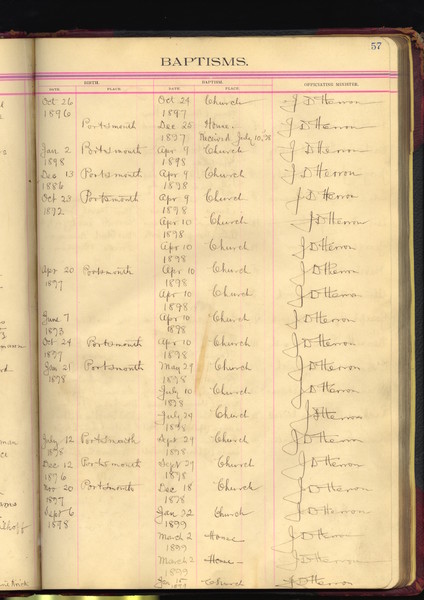 57
BAPTISMS.
BIRTH. BAPTISM. OFFICIATING MINISTER.
DATE PLACE DATE PLACE
Oct 26 Oct 24 Church J D Herron
1896 1897
Portsmouth Dec 26 Home. J D Herron
1897 Received July 10,
Jan 2 Portsmouth Apr 9 Church J D Herron
1898 1898
Dec 13 Portsmouth Apr 9 Church J D Herron
1886 1898
Oct 23 Portsmouth Apr 9 Church J D Herron
1892 1898
Apr 10 Church J D Herron
1898
Apr 10 Church J D Herron
1898
Apr 20 Portsmouth Apr 10 Church J D Herron
1877 1898
Apr 10 Church J D Herron
1898
June 7 Apr 10 Church J D Herron
1873 1898
Oct 24 Portsmouth Apr 10 Church J D Herron
1897 1898
Jan 21 Portsmouth May 29 Church J D Herron
1898 1898
July 10 Church J D Herron
1898
July 24 Church J D Herron
1898
July 12 Portsmouth Sept 29 Church J D Herron
1898 1898
Dec 12 Portsmouth Sept 29 Church J D Herron
1876 1898
Nov 20 Portsmouth Dec 18 Church J D Herron
1897 1898
Sept 6 Jan 22 Church J D Herron
1898 1899
March 2 Home J D Herron
1899
March 2 Home J D Herron
1899
Jan 15 Church J D Herron